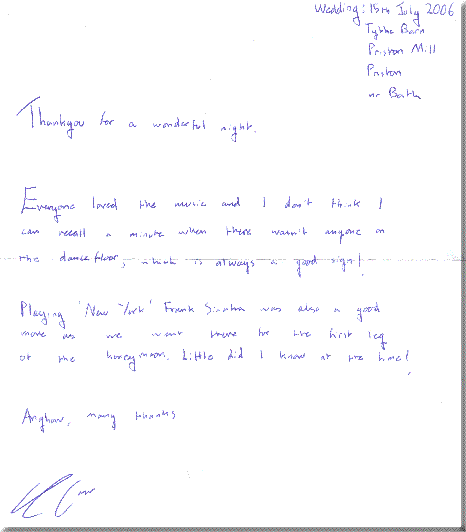 Wedding: 15th July 2006
Tythe Barn
Priston Mill
Priston
nr Bath
Thankyou for a wonderful night.
Everyone loved the music and I don't think I
can recall a minute when there wasn't anyone on
the dancefloor, which is always a good sign!
Playing 'New York' Frank Sinatra was also a good
move as we went there for the first leg
of the honeymoon. Little did I know at the time!
Anyhow, many thanks